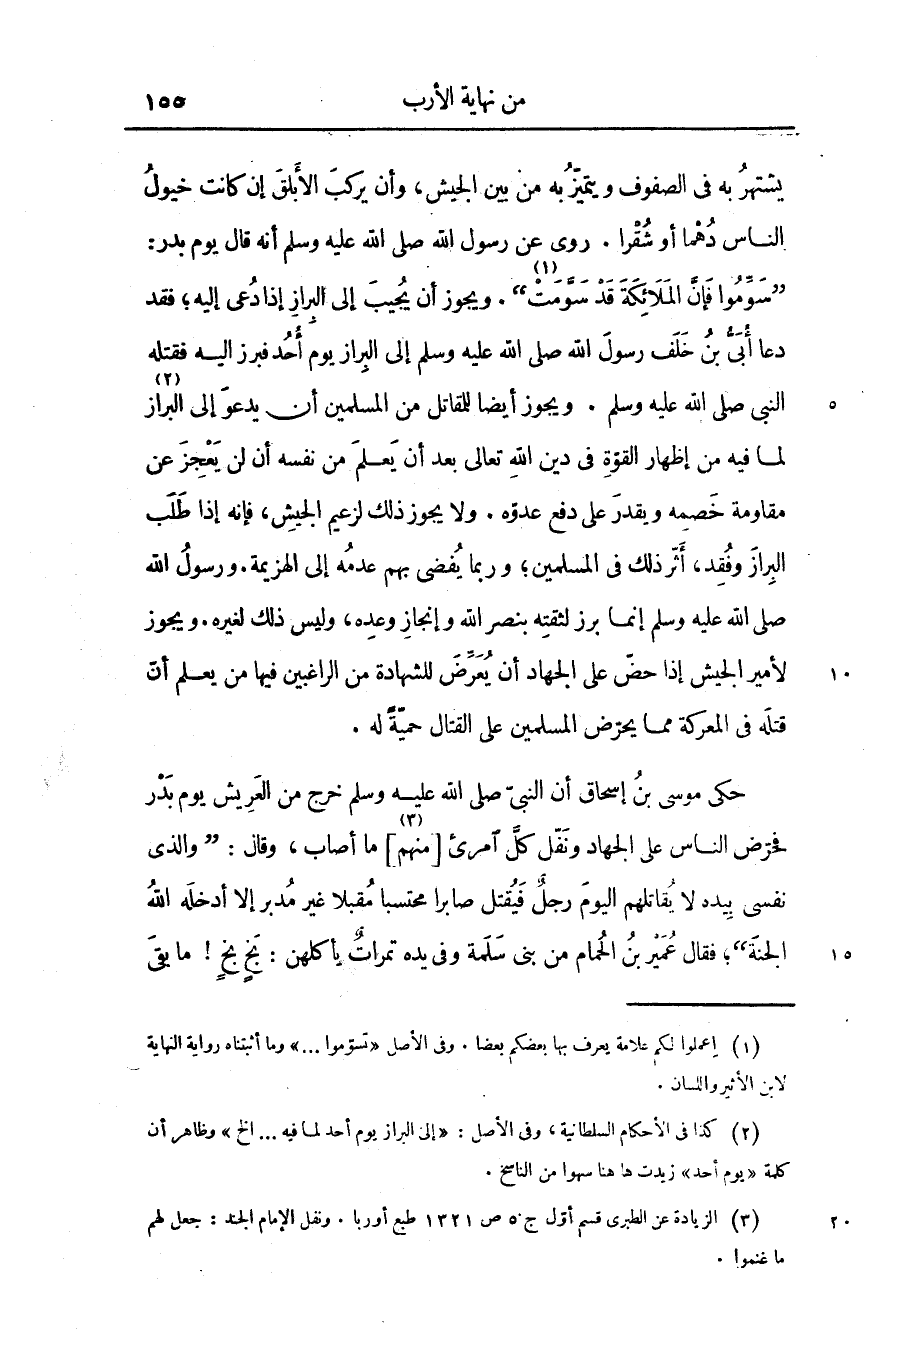 من نهاية الأرب ١٥٥
يشتهرُ به فى الصفوف ويتميّزُ به من بين الجيش، وأن يركبَ الأَبلقَ إن كانت خيولُ
النـاس دُهْما أو شُقْرا . روى عن رسول الله صلى الله عليه وسلم أنه قال يوم بدر :
”سَوِّمُوا فَإنَّ المَلَائِكَةَ قَدْ سَوَّمَتْ“ (١) . ويجوز أن يُجيبَ إلى البِرازِ إذا دُعى إليه؛ فقد
دعا أُبَىُّ بنُ خَلَف رسولَ الله صلى الله عليه وسلم إلى البِراز يوم أُحُد فبرز اليـه فقتله
النبى صلى الله عليه وسلم . ويجوز أيضا للقاتل من المسلمين أن يدعوَ إلى البراز (٢) ٥
لمـا فيه من إظهار القوّةِ فى دين اللهِ تعالى بعد أن يَعـلمَ من نفسه أن لن يَعْجِزَ عن
مقاومة خَصمِه ويقدرَ على دفع عدوّه . ولا يجوز ذلك لزعيم الجيشِ، فإنه إذا طَلَب
البِرازَ وفُقِد، أَثّر ذلك فى المسلمين؛ وربما يُفضى بهم عدمُه إلى الهزيمة . ورسولُ الله
صلى الله عليه وسلم إنمـا برز لثقتِه بنصر الله وإنجازِ وعدِه، وليس ذلك لغيره . ويجوز
لأمير الجيش إذا حضّ على الجهاد أن يُعَرِّضَ للشهادة من الراغبين فيها من يعـلم أنّ ١٠
قتلَه فى المعركة ممـا يحرّض المسلمين على القتال حميّةً له .
حكى موسى بنُ إسحاق أن النبىّ صلى الله عليـه وسلم خرج من العَرِيش يوم بَدْر
فحرّض النـاس على الجهاد ونَفّل كلَّ آمرئ [منهم] (٣) ما أصاب، وقال : ”والذى
نفسى بِيده لا يُقاتلهم اليومَ رجلٌ فَيُقتل صابرا محتسبا مُقبلا غير مُدبر إلا أدخلَه اللهُ
الجنةَ“؛ فقال عُمَيْر بنُ الحُمام من بنى سَلَمة وفى يده تمراتٌ يأكلهن : بَخٍ بخٍ ! ما بقىَ ١٥
(١) إعملوا لكم علامة يعرف بها بعضكم بعضا . وفى الأصل «تسوّموا ...» وما أثبتناه رواية النهاية
لابن الأثير واللسان .
(٢) كذا فى الأحكام السلطانية، وفى الأصل : «إلى البراز يوم أحد لما فيه ... الخ» وظاهر أن
كلمة «يوم أحد» زيدت ها هنا سهوا من الناسخ .
(٣) الزيادة عن الطبرى قسم أوّل ج ٥ ص ١٣٢١ طبع أوربا . ونفل الإمام الجند : جعل لهم ٢٠
ما غنموا .